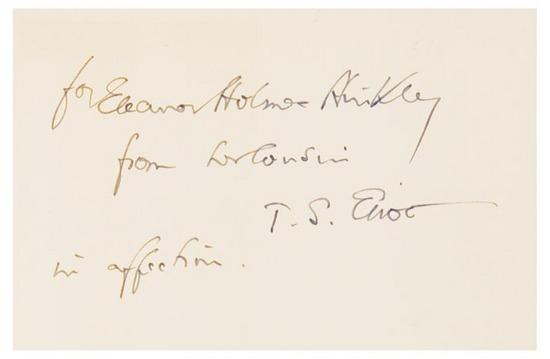 for Eleanor Holmes Hinkley
from her cousin
T. S. Eliot
in affection.